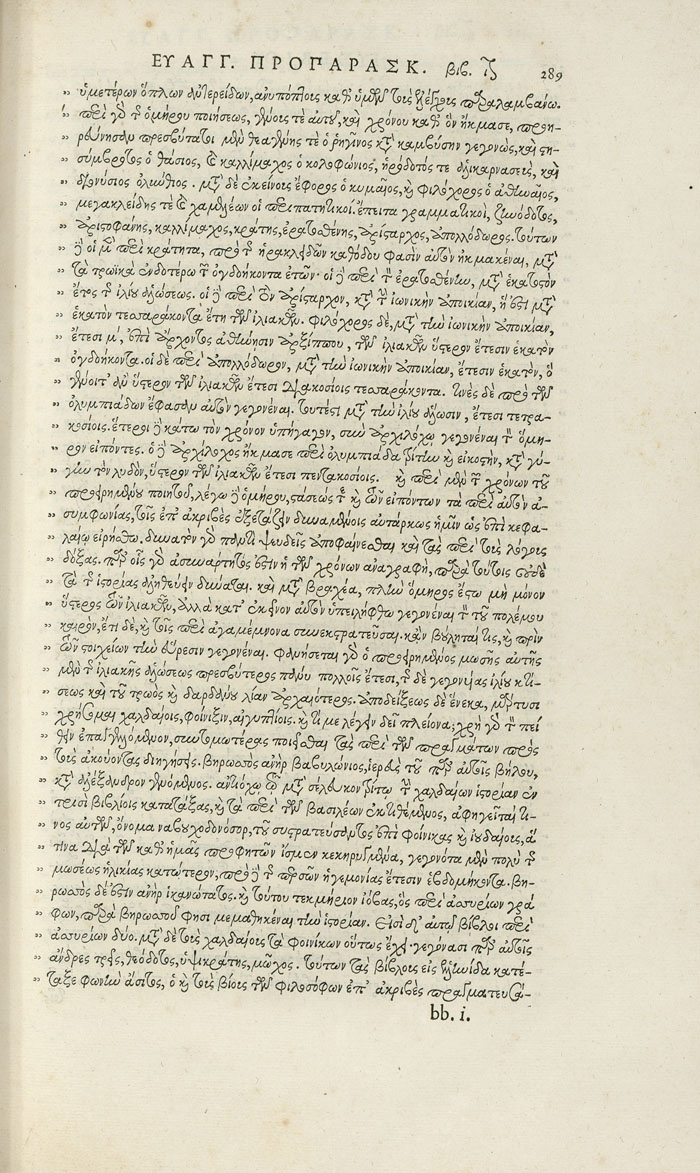 ΕΥΑΓΓ. ΠΡΟΠΑΡΑΣΚ. βιβ. 289
ὑμετέρων ὅπλων ἀντερείδων, ἀνυπόπτους καθ' ὑμῶν τοὺς ἐλέγχους παραλαμβάνω.
περὶ γὰρ τῆς ὁμήρου ποιήσεως, γένους τε αὐτοῦ, καὶ χρόνου καθ' ὃν ἤκμασε, προη-
ρεύνησαν πρεσβύτατοι μὲν θεαγένης τε ὁ ῥηγῖνος κατὰ καμβύσην γεγονὼς, καὶ στη-
σίμβροτος ὁ θάσιος, καὶ καλλίμαχος ὁ κολοφώνιος, ἡρόδοτός τε ἁλικαρνασεὺς, καὶ
διονύσιος ὀλύνθιος. μετὰ δὲ ἐκείνους ἔφορος ὁ κυμαῖος, καὶ φιλόχορος ὁ ἀθηναῖος,
μεγακλείδης τε καὶ χαμαιλέων οἱ περιπατητικοί. ἔπειτα γραμματικοὶ, ζηνόδοτος,
ἀριστοφάνης, καλλίμαχος, κράτης, ἐρατοσθένης, ἀρίσταρχος, ἀπολλόδωρος. τούτων
δὲ οἱ μὲν περὶ κράτητα, πρὸ τῆς ἡρακλειδῶν καθόδου φασὶν αὐτὸν ἠκμακέναι, μετὰ
τὰ τρωϊκὰ ἐνδοτέρω τῶν ὀγδοήκοντα ἐτῶν· οἱ δὲ περὶ τὸν ἐρατοσθένην, μετὰ ἑκατοστὸν
ἔτος τῆς ἰλίου ἁλώσεως. οἱ δὲ περὶ τὸν ἀρίσταρχον, κατὰ τὴν ἰωνικὴν ἀποικίαν, ἥ ἐστι μετὰ
ἑκατὸν τεσσαράκοντα ἔτη τῶν ἰλιακῶν. φιλόχορος δὲ, μετὰ τὴν ἰωνικὴν ἀποικίαν,
ἔτεσι μ', ἐπὶ ἄρχοντος ἀθήνησιν ἀρξίππου, τῶν ἰλιακῶν ὕστερον ἔτεσιν ἑκατὸν
ὀγδοήκοντα. οἱ δὲ περὶ ἀπολλόδωρον, μετὰ τὴν ἰωνικὴν ἀποικίαν, ἔτεσιν ἑκατὸν, ὃ
γένοιτ' ἂν ὕστερον τῶν ἰλιακῶν ἔτεσι διακοσίοις τεσσαράκοντα. τινὲς δὲ πρὸ τῶν
ὀλυμπιάδων ἔφασαν αὐτὸν γεγονέναι. τουτέστι μετὰ τὴν ἰλίου ἅλωσιν, ἔτεσι τετρα-
κοσίοις. ἕτεροι δὲ κάτω τὸν χρόνον ὑπήγαγον, σὺν ἀρχιλόχῳ γεγονέναι τὸν ὅμη-
ρον εἰπόντες. ὁ δὲ ἀρχίλοχος ἤκμασε περὶ ὀλυμπιάδα τρίτην καὶ εἰκοστὴν, κατὰ γύ-
γην τὸν λυδὸν, ὕστερον τῶν ἰλιακῶν ἔτεσι πεντακοσίοις. καὶ περὶ μὲν τῶν χρόνων τοῦ
προειρημένου ποιητοῦ, λέγω δὲ ὁμήρου, στάσεώς τε καὶ τῶν εἰπόντων τὰ περὶ αὐτὸν ἀ-
συμφωνίας, τοῖς ἐπ' ἀκριβὲς ἐξετάζειν δυναμένοις αὐτάρκως ἡμῖν ὡς ἐπὶ κεφα-
λαίων εἰρήσθω, δυνατὸν γὰρ παντὶ ψευδεῖς ἀποφαίνεσθαι καὶ τὰς περὶ τοὺς λόγους
δόξας. παρ' οἷς γὰρ ἀσυνάρτητός ἐστιν ἡ τῶν χρόνων ἀναγραφὴ, παρὰ τούτοις οὐδὲ
τὰ τῆς ἱστορίας ἀληθεύειν δυνατόν. καὶ μετὰ βραχέα, πλὴν ὅμηρος ἔστω μὴ μόνον
ὕστερος τῶν ἰλιακῶν, ἀλλὰ κατ' ἐκεῖνον αὐτὸν ὑπειλήφθω γεγονέναι τὸν τοῦ πολέμου
καιρὸν, ἔτι δὲ, καὶ τοῖς περὶ ἀγαμέμνονα συνεκστρατεῦσαι. κἂν βούληταί τις, καὶ πρὶν
τῶν στοιχείων τὴν εὕρεσιν γεγονέναι. φανήσεται γὰρ ὁ προειρημένος μωσῆς αὐτῆς
μὲν τῆς ἰλιακῆς ἁλώσεως πρεσβύτερος πάνυ πολλοῖς ἔτεσι, τῆς δὲ γεγονυίας ἰλίου κτί-
σεως καὶ τοῦ τρωὸς καὶ δαρδάνου λίαν ἀρχαιότερος. ἀποδείξεως δὲ ἕνεκα, μάρτυσι
χρήσομαι χαλδαίοις, φοίνιξιν, αἰγυπτίοις. καὶ τί με λέγειν δεῖ πλείονα; χρὴ γὰρ τὸν πεί
θειν ἐπαγγελλόμενον, συντομωτέρας ποιεῖσθαι τὰς περὶ τῶν πραγμάτων πρὸς
τοὺς ἀκούοντας διηγήσεις. βηρωσσὸς ἀνὴρ βαβυλώνιος, ἱερεὺς τοῦ παρ' αὐτοῖς βήλου,
κατὰ ἀλέξανδρον γενόμενος. ἀντιόχῳ τῷ μετὰ σέλευκον τρίτῳ τὴν χαλδαίων ἱστορίαν ἐν
τρισὶ βιβλίοις κατατάξας, καὶ τὰ περὶ τῶν βασιλέων ἐκτιθέμενος, ἀφηγεῖταί τι-
νος αὐτῶν, ὄνομα ναβουχοδονόσορ, τοῦ συστρατεύσαντος ἐπὶ φοίνικας καὶ ἰουδαίους, ἅ
τινα διὰ τῶν καθ' ἡμᾶς προφητῶν ἴσμεν κεκηρυγμένα, γεγονότα μὲν πολὺ τῆς
μωσέως ἡλικίας κατώτερον, πρὸ δὲ τῆς περσῶν ἡγεμονίας ἔτεσιν ἑβδομήκοντα. βη-
ρωσσὸς δέ ἐστιν ἀνὴρ ἱκανώτατος. καὶ τούτου τεκμήριον ἰόβας, ὃς περὶ ἀσσυρίων γρά
φων, παρὰ βηρωσσοῦ φησι μεμαθηκέναι τὴν ἱστορίαν. εἰσὶ δ' αὐτῷ βίβλοι περὶ
ἀσσυρίων δύο. μετὰ δὲ τοὺς χαλδαίους τὰ φοινίκων οὕτως ἔχει· γεγόνασι παρ' αὐτοῖς
ἄνδρες τρεῖς, θεόδοτος, ὑψικράτης, μῶχος. τούτων τὰς βίβλους εἰς ἑλληνίδα κατέ-
ταξε φωνὴν ἄσιτος, ὁ καὶ τοὺς βίους τῶν φιλοσόφων ἐπ' ἀκριβὲς πραγματευσά-
bb. i.